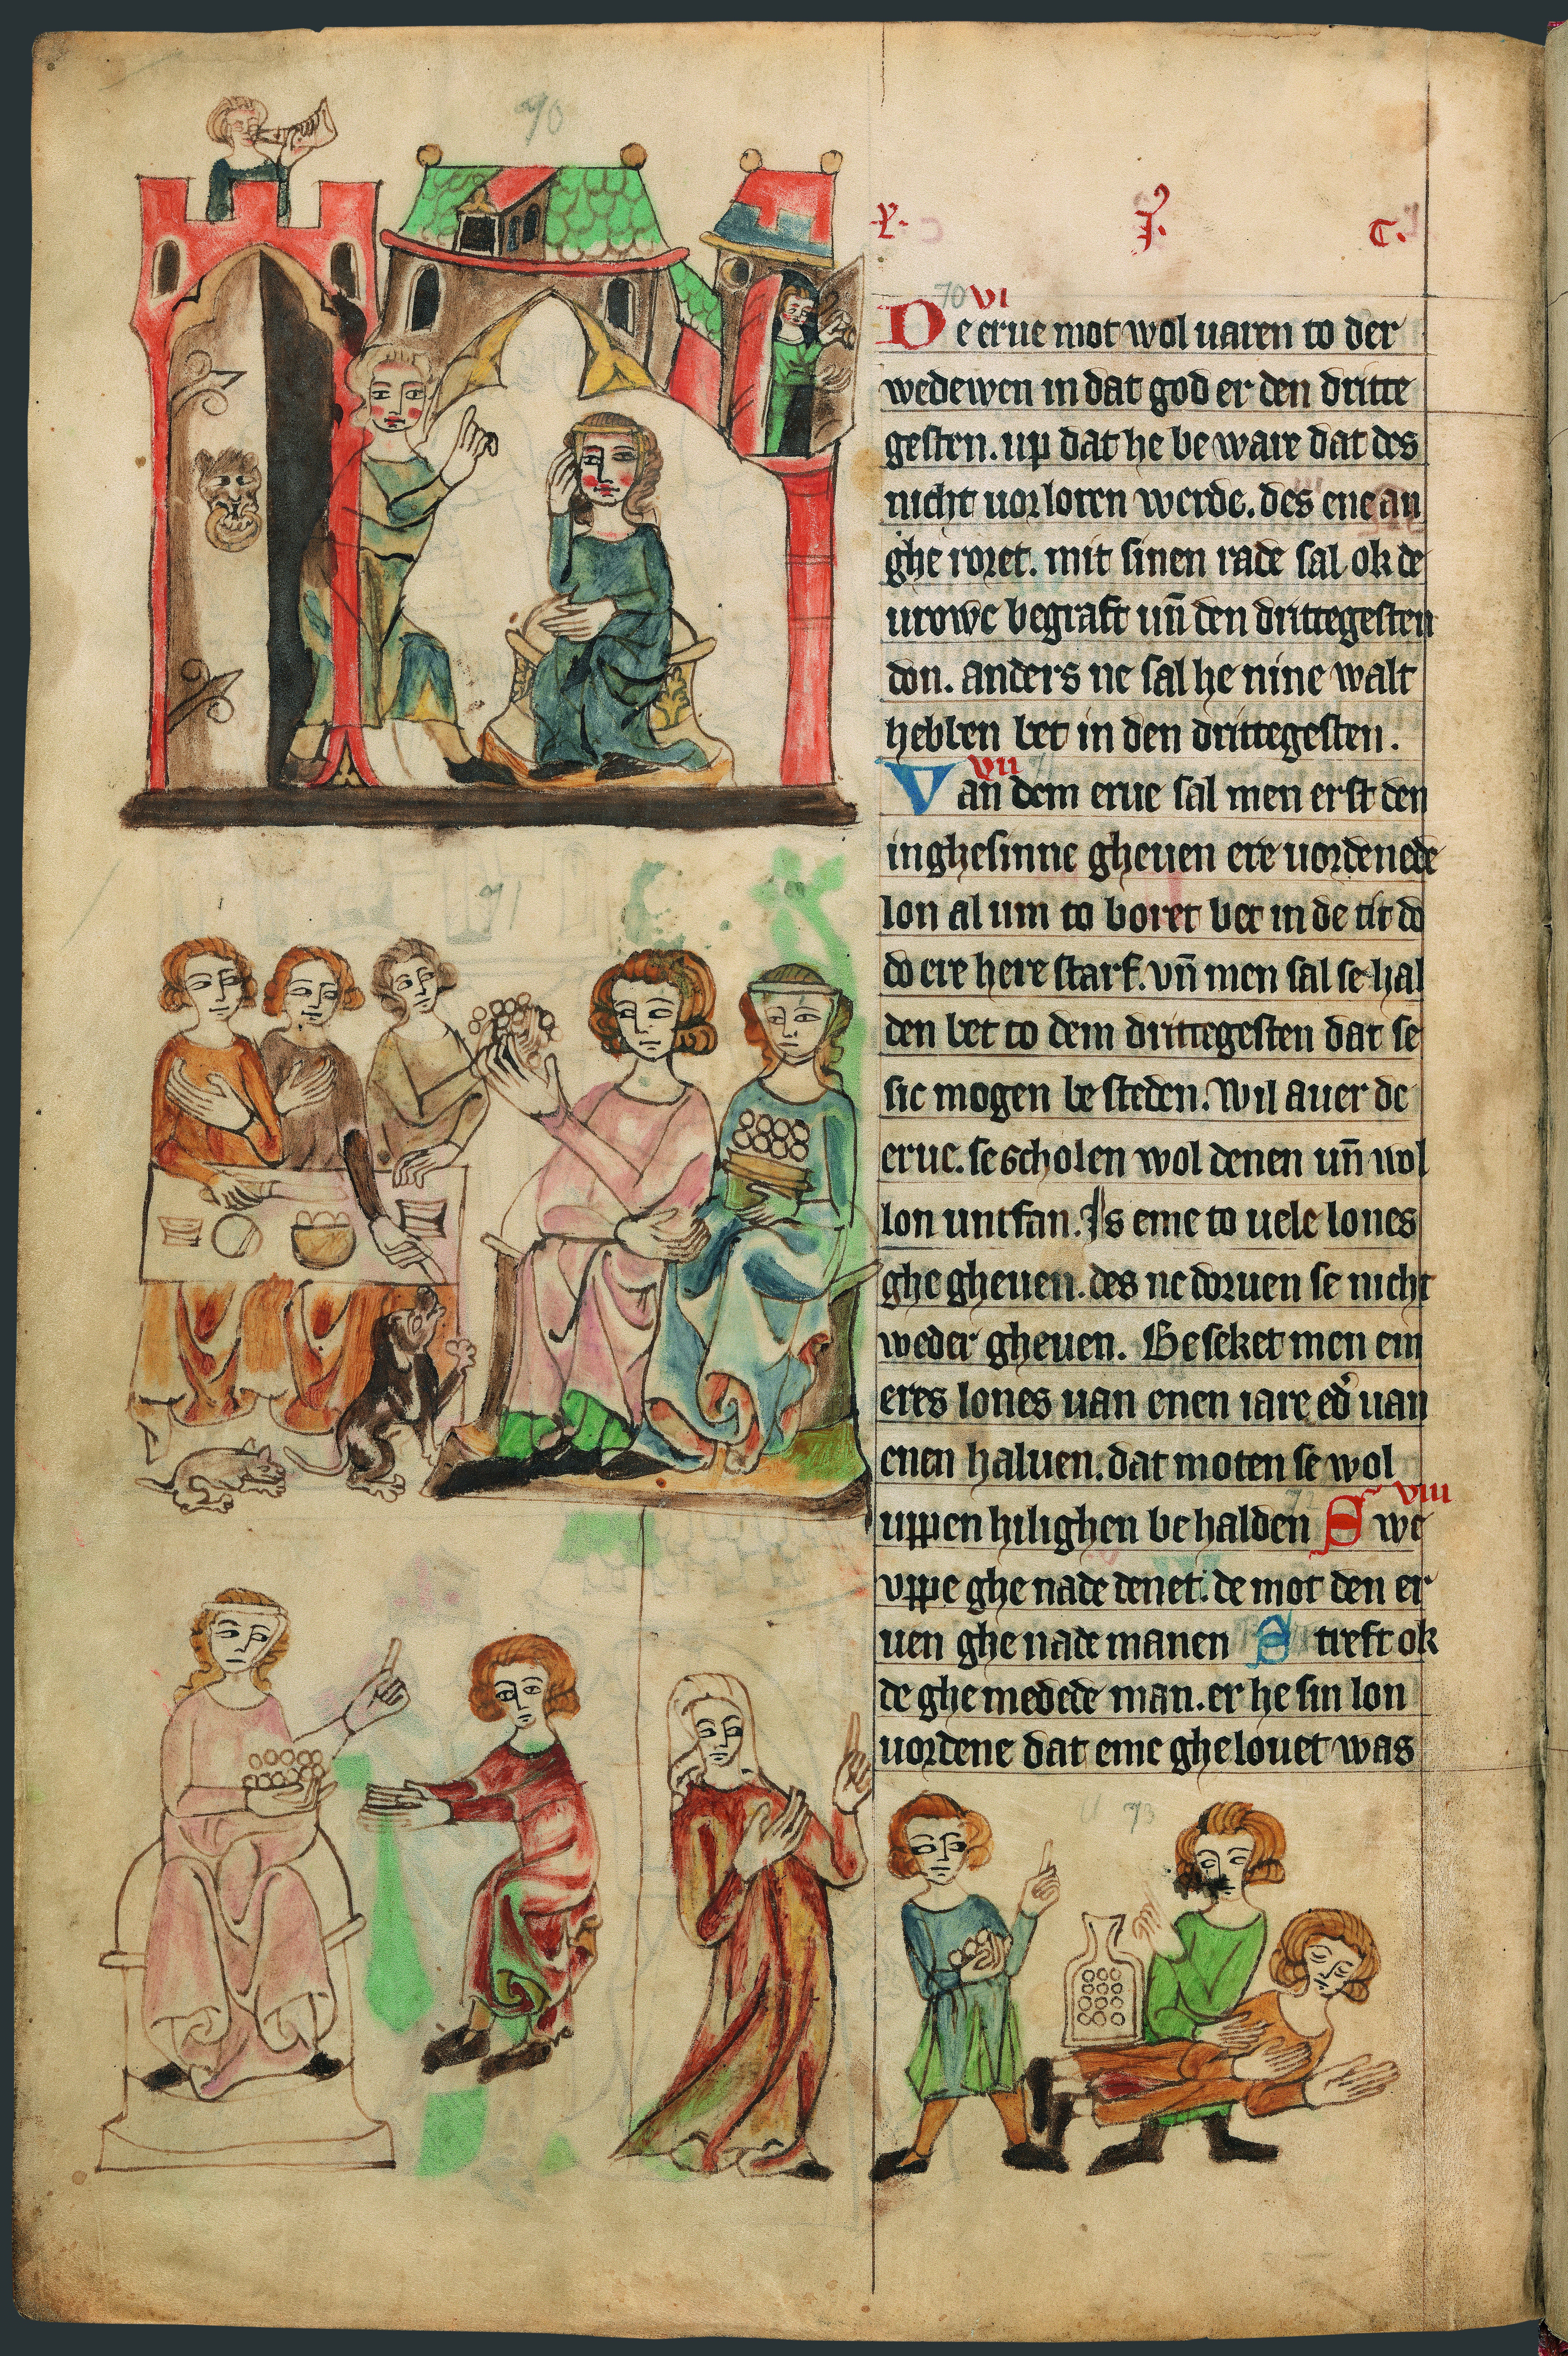 70
L. J. C.
70 VI
De erue mot wol uaren to der
wedewen in dat god er den dritte
gesten. up dat he be ware dat des
nicht uorloren werde. des ene an
ghe roret. mit sinen rade sal ok de
urowe begraft un̄ den drittegesten
don. anders ne sal he nine walt
hebben bet in den drittegesten.
VII 71
Van dem erue sal men erst den
inghesinne gheuen ere uordenede
lon al um to boret bet in de tit do
do ere here starf. vn̄ men sal se hal
den bet to dem drittegesten dat se
sic mogen be steden. Wil auer de
erue. se scholen wol denen un̄ uol
lon untfan. Is eme to uele lones
ghe gheuen. des ne doruen se nicht
weder gheuen. Beseket men em
eres lones uan enen iare ed' uan
enen haluen. dat moten se wol
72 VIII
uppen hilighen behalden Swe
vppe ghe nade denet. de mot den er
uen ghe nade manen Streft ok
de ghe medede man. er he sin lon
uordene dat eme ghelouet was
71
73